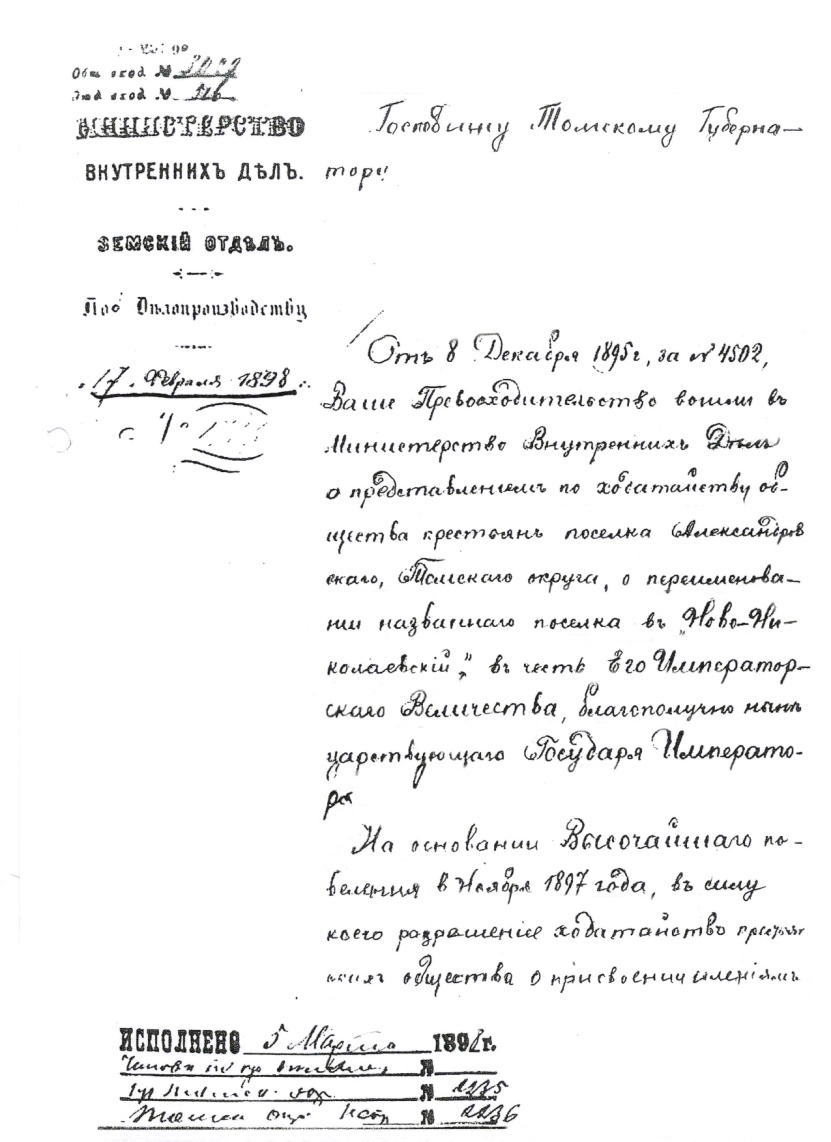 Общ. вход. №
Отд. вход. № 326
МИНИСТЕРСТВО
ВНУТРЕННИХЪ ДѢЛЪ.
ЗЕМСКІЙ ОТДѢЛЪ.
По Дѣлопроизводству
17 Февраля 1898
Господину Томскому Губерна-
тору
Отъ 8 Декабря 1895 г, за № 4502,
Ваше Превосходительство вошли въ
Министерство Внутреннихъ Дѣлъ
о представленіемъ по ходатайству об-
щества крестьянъ поселка Александров
скаго, Томскаго округа, о переименова-
ніи названнаго поселка въ "Ново-Ни-
колаевскій," въ честь Его Император-
скаго Величества, благополучно нынѣ
царствующаго Государя Императо-
ра
На основании Высочайшаго по-
веления 8 Ноября 1897 года, въ силу
коего разрешеніе ходатайствъ крестьян
скихъ общества о присвоении селеніямъ
ИСПОЛНЕНО 5 Марта 1898 г.
№
№ 2235
Томск окр. Испр № 2236